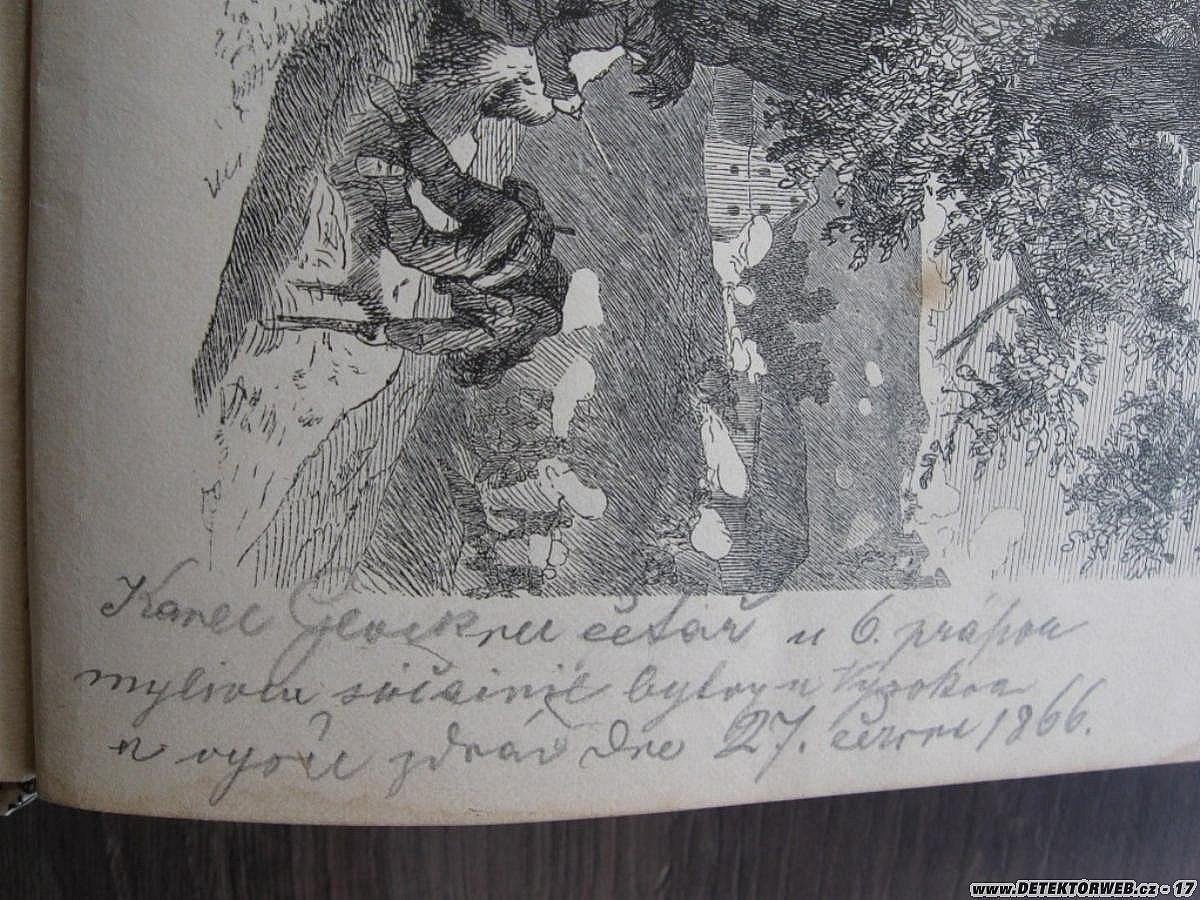 Karel Glockner četař u 6. práporu
myslivců súčasnil bytvy u Vysokova
dne 27. června 1866.
www.DETEKTORWEB.cz - 17